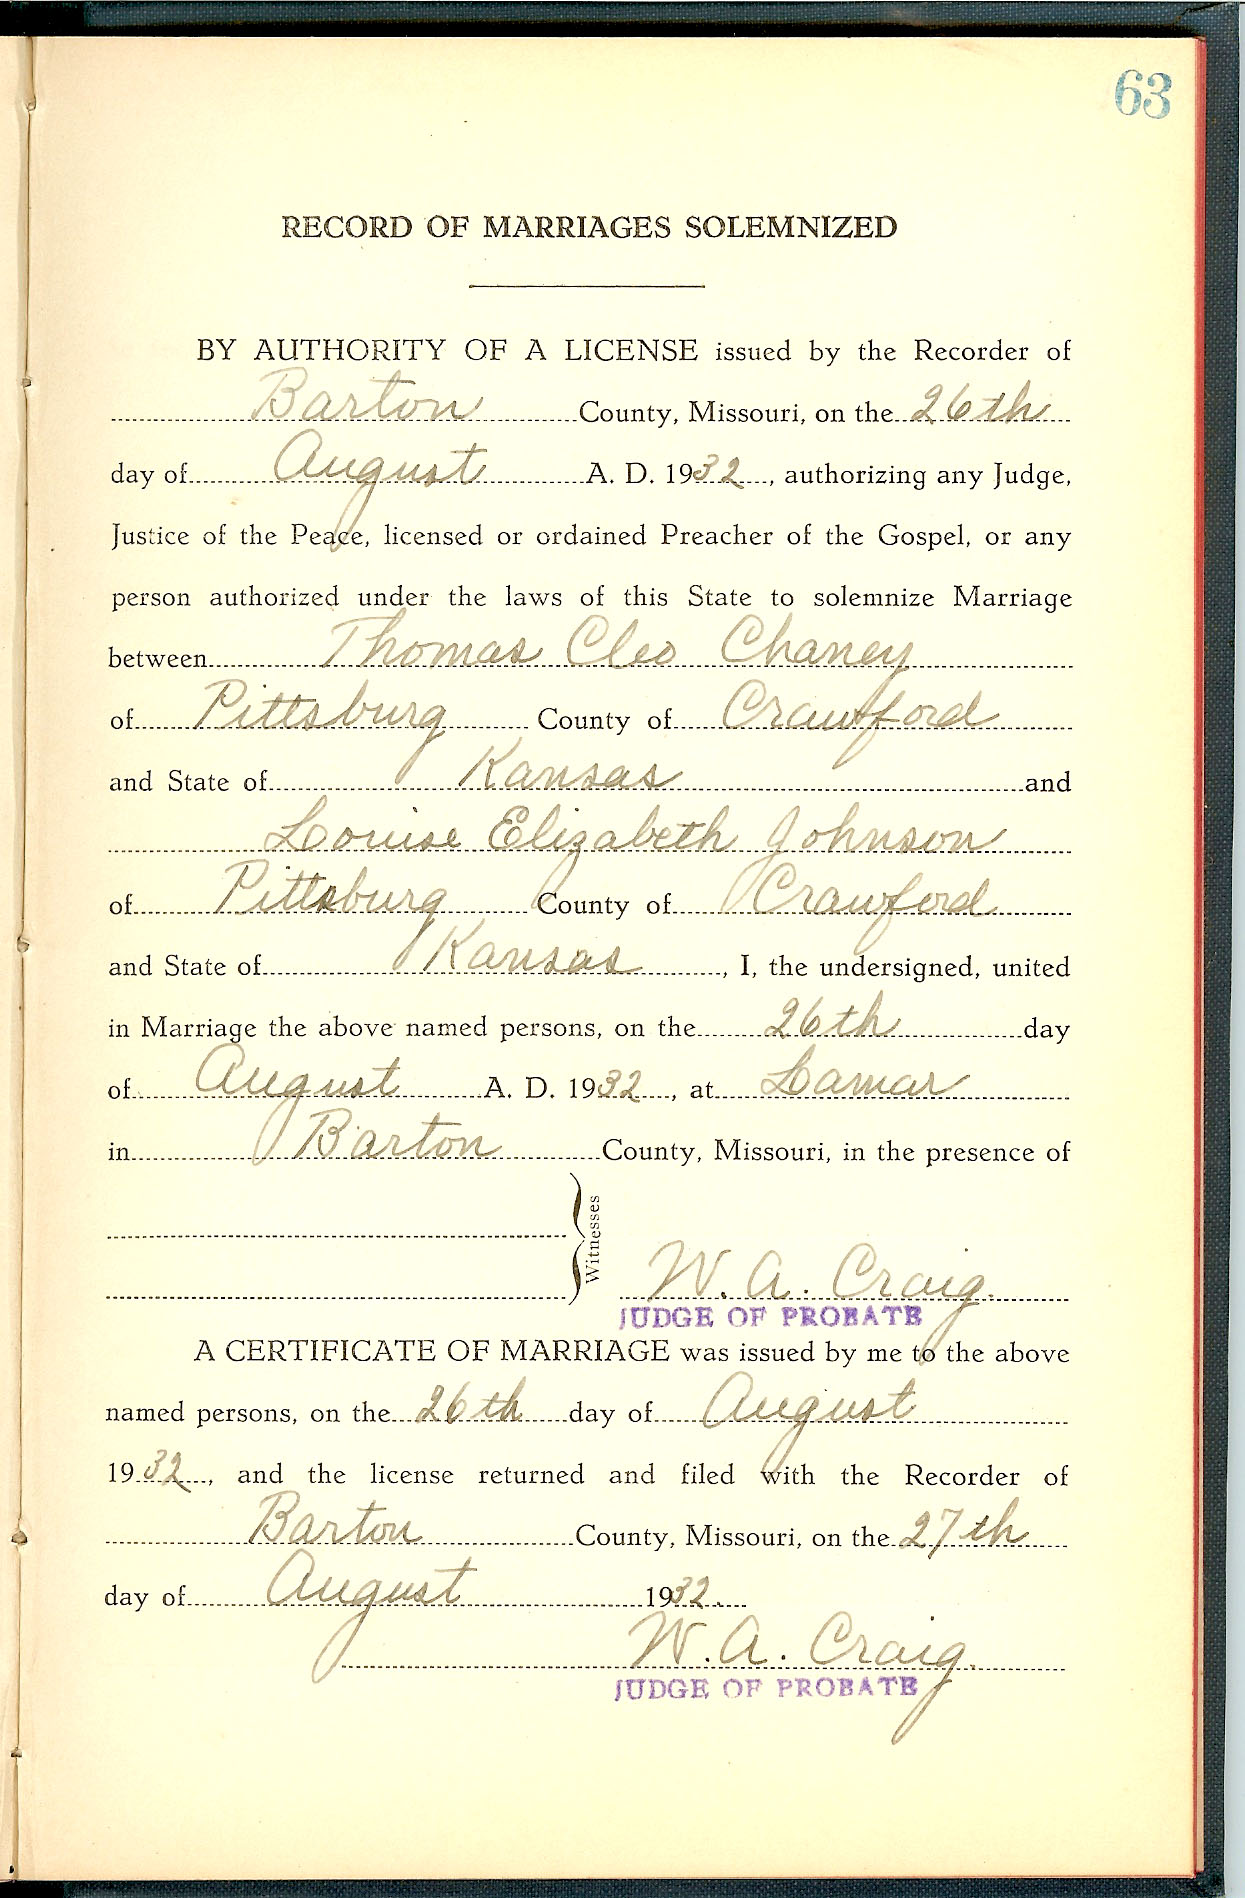 63
RECORD OF MARRIAGES SOLEMNIZED
BY AUTHORITY OF A LICENSE issued by the Recorder of
Barton County, Missouri, on the 26th
day of August A. D. 1932, authorizing any Judge,
Justice of the Peace, licensed or ordained Preacher of the Gospel, or any
person authorized under the laws of this State to solemnize Marriage
between Thomas Cleo Chaney
of Pittsburg County of Crawford
and State of Kansas and
Louise Elizabeth Johnson
of Pittsburg County of Crawford
and State of Kansas, I, the undersigned, united
in Marriage the above named persons, on the 26th day
of August A. D. 1932, at Lamar
in Barton County, Missouri, in the presence of
Witnesses
W. A. Craig.
JUDGE OF PROBATE
A CERTIFICATE OF MARRIAGE was issued by me to the above
named persons, on the 26th day of August
1932, and the license returned and filed with the Recorder of
Barton County, Missouri, on the 27th
day of August 1932.
W. A. Craig.
JUDGE OF PROBATE